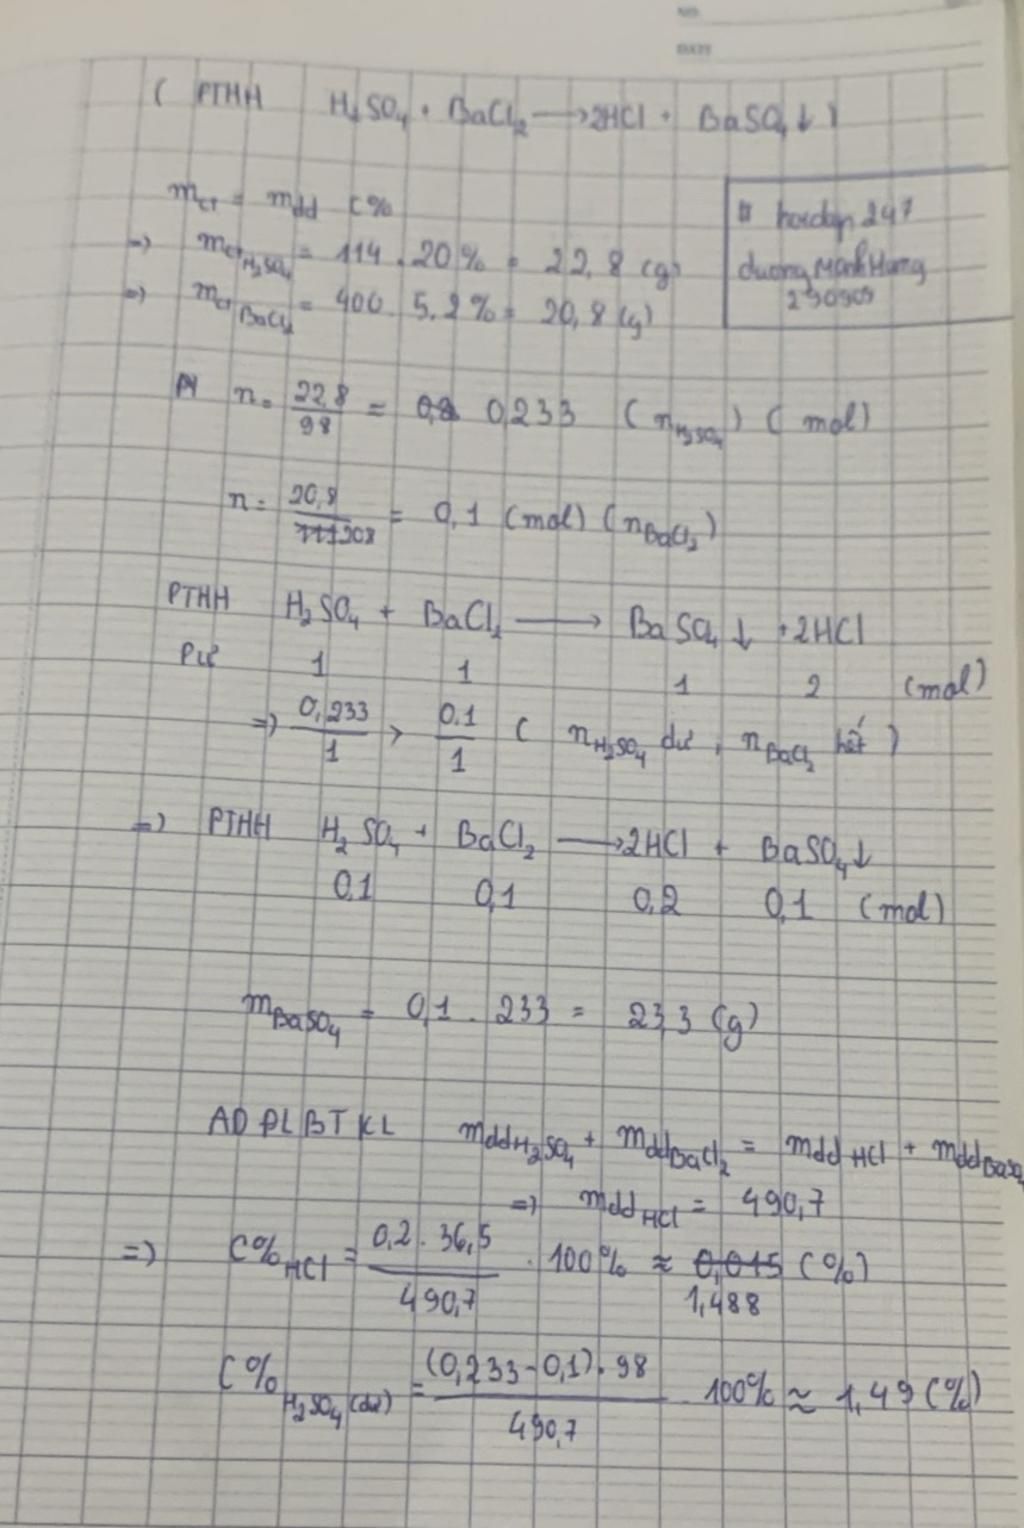 NO.
DATE
( PTHH H₂SO₄ + BaCl₂ → 2HCl + BaSO₄↓ )
m_ct = mdd C%
=) m_ct H₂SO₄ = 114 . 20% = 22,8 (g)
=) m_ct BaCl₂ = 400 . 5,2% = 20,8 (g)
# hoidap 247
duong Manh Hung
230909
n = 22,8/98 = 0,233 (n H₂SO₄) (mol)
n = 20,8/208 = 0,1 (mol) (n BaCl₂)
PTHH H₂SO₄ + BaCl₂ → BaSO₄↓ + 2HCl
Pứ 1 1 1 2 (mol)
=) 0,233/1 > 0.1/1 ( n H₂SO₄ dư , n BaCl₂ hết )
=) PTHH H₂SO₄ + BaCl₂ → 2HCl + BaSO₄↓
0,1 0,1 0,2 0,1 (mol)
m BaSO₄ = 0,1 . 233 = 23,3 (g)
AD ĐL BT KL mdd H₂SO₄ + mdd BaCl₂ = mdd HCl + mdd BaSO₄
=) mdd HCl = 490,7
=) C% HCl = 0,2 . 36,5/490,7 . 100% ≈ 0,015 (%)
1,488
C% H₂SO₄ (dư) = (0,233-0,1) . 98/490,7 . 100% ≈ 1,49 (%)